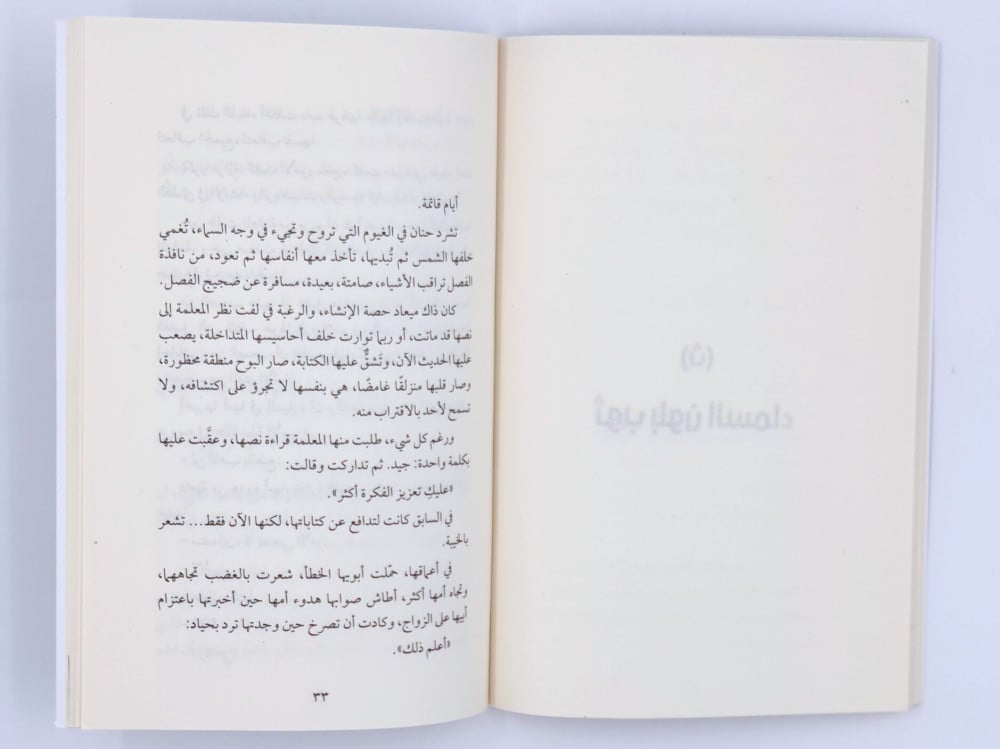 أيام قاتمة.
تشرد حنان في الغيوم التي تروح وتجيء في وجه السماء، تُغمي
خلفها الشمس ثم تُبديها، تأخذ معها أنفاسها ثم تعود، من نافذة
الفصل تراقب الأشياء، صامتة، بعيدة، مسافرة عن ضجيج الفصل.
كان ذاك ميعاد حصة الإنشاء، والرغبة في لفت نظر المعلمة إلى
نصها قد ماتت، أو ربما توارت خلف أحاسيسها المتداخلة، يصعب
عليها الحديث الآن، وتَشقُّ عليها الكتابة، صار البوح منطقة محظورة،
وصار قلبها منزلقًا غامضًا، هي بنفسها لا تجرؤ على اكتشافه، ولا
تسمح لأحد بالاقتراب منه.
ورغم كل شيء، طلبت منها المعلمة قراءة نصها، وعقَّبت عليها
بكلمة واحدة: جيد. ثم تداركت وقالت:
«عليكِ تعزيز الفكرة أكثر».
في السابق كانت لتدافع عن كتاباتها، لكنها الآن فقط... تشعر
بالخيبة.
في أعماقها، حمّلت أبويها الخطأ، شعرت بالغضب تجاههما،
وتجاه أمها أكثر، أطاش صوابها هدوء أمها حين أخبرتها باعتزام
أبيها على الزواج، وكادت أن تصرخ حين وجدتها ترد بحياد:
«أعلم ذلك».
٣٣
(ث)
ثوب بلون السماء